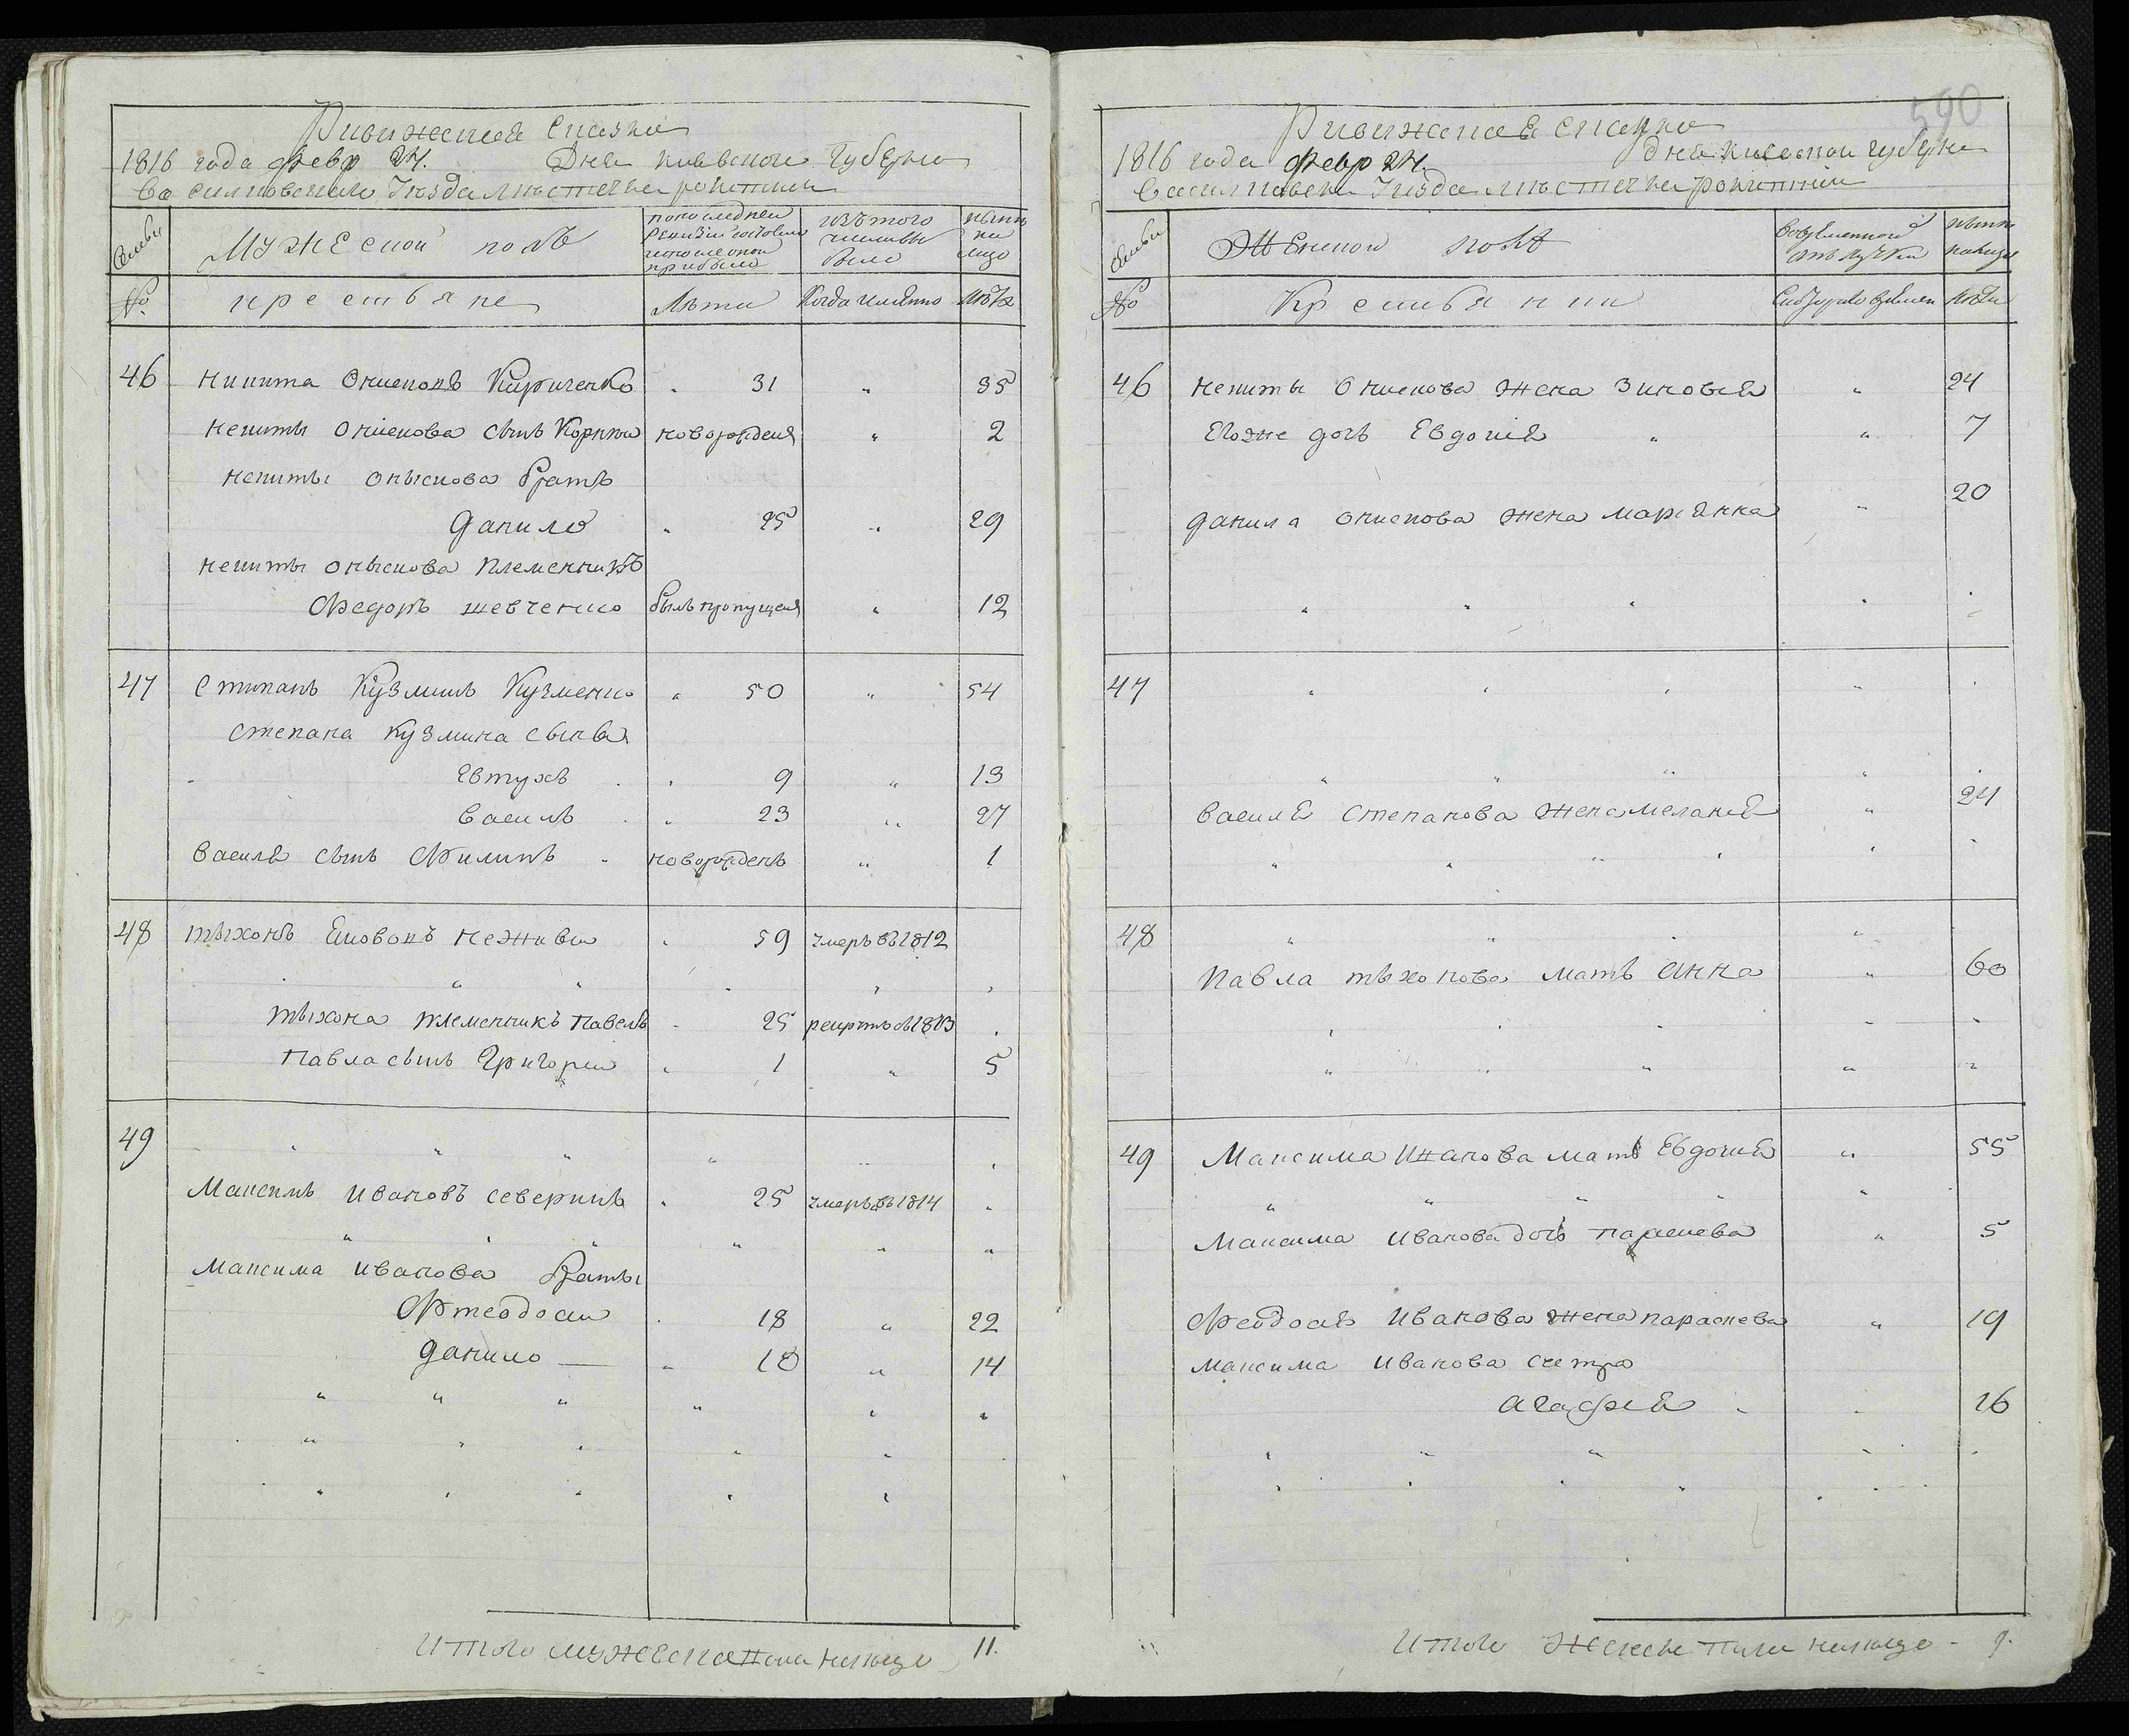 Ривижская сказка
1816 года февр 24. Дня киевской губернѣ
Василковскаго уѣзда мѣстечка рокитни
Семьи
Мужеской полъ
по последней ревизии состояло и после оной прибыло
изъ того числа выбыло
нынѣ на лицо
№
крестьяне
Лѣта
Когда имянно
Лѣта
46 никита Онисковъ Кириченко " 31 " 35
никиты Онискова сынъ Корнѣй новорожденъ " 2
никиты оныскова братъ
данило " 25 " 29
никиты оныскова племенникъ
Федоръ шевченко былъ пропущенъ " 12
47 Стипанъ Кузминъ Кузменко " 50 " 54
степана кузмина сынвя
Евтухъ " 9 " 13
василь " 23 " 27
василя сынъ Филипъ новорожденъ " 1
48 тыхонъ неживы " 59 умеръ въ 1812
тыхона племенникъ павелъ " 25 рекрутъ въ 1813
павла сынъ Григорей " 1 " 5
49
Максимъ ивановъ северинъ " 25 умеръ въ 1814
Максима иванова браты
Фтеодосии " 18 " 22
данило " 10 " 14
итого мужеска пола налицо 11.
590
Ривижская сказка
1816 года февр 24. дня киевской губерни
Василковска уезда мѣстечка рокитни
Семьи
Женской полъ
во временной отлучки
нынѣ налицо
№
Крестьянки
Лѣта
46 никиты Онискова жена Зиновия " 24
Егоже дочь Евдокия " " 7
данила онискова жена марьянка " 20
47
василя степанова жена мелания " 24
48
павла тыхонова мать анна " 60
49 Максима Иванова мать Евдокия " 55
Максима иванова дочь параскева " 5
Феодосия Иванова жена параскева " 19
максима иванова сестра
агафия " 26
Итого женска пола налицо - 9.